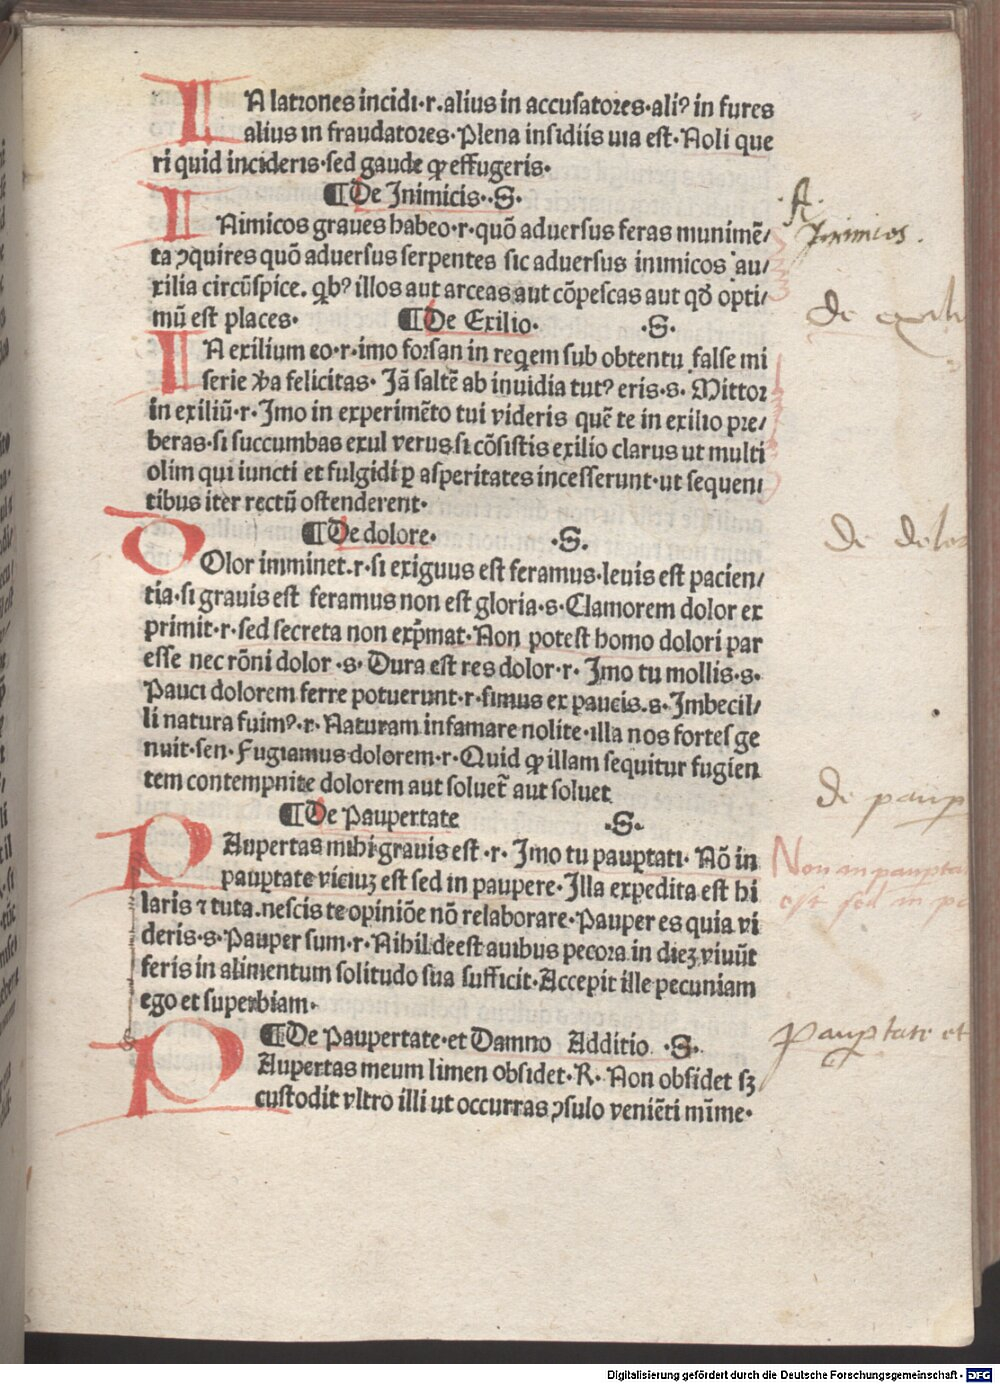 IN latrones incidi·r·alius in accusatores·aliꝰ in fures
alius in fraudatores·Plena insidiis uia est·Noli que
ri quid incideris·sed gaude ꝙ effugeris·
¶De Inimicis··S·
INimicos graues habeo·r·quō aduersus feras munimē/
ta ꝯquires quō aduersus serpentes sic aduersus inimicos au/
xilia circūspice. qͥbꝰ illos aut arceas aut cōpescas aut qđ opti/
mū est places· ¶De Exilio· ·S·
IN exilium eo·r·imo forsan in regem sub obtentu false mi
serie ꝟa felicitas· Jā saltē ab inuidia tutꝰ eris·s· Mittor
in exiliū·r· Jmo in experimēto tui videris quē te in exilio pre/
beras·si succumbas exul verus·si cōsistis exilio clarus ut multi
olim qui iuncti et fulgidi ꝑ asperitates incesserunt·ut sequen
tibus iter rectū ostenderent·
¶De dolore· ·S·
DOlor imminet.r·si exiguus est feramus·leuis est pacien/
tia·si grauis est feramus non est gloria·s·Clamorem dolor ex
primit·r·sed secreta non exp̄mat·Non potest homo dolori par
esse nec rōni dolor ·s· Dura est res dolor·r· Jmo tu mollis·s·
Pauci dolorem ferre potuerunt·r·simus ex paucis.s·Jmbecil/
li natura fuimꝰ·r·Naturam infamare nolite·illa nos fortes ge
nuit·sen·Fugiamus dolorem·r·Quid ꝙ illam sequitur fugien
tem contempnite dolorem aut soluet̄ aut soluet
¶De Paupertate ·S·
PAupertas mihi grauis est ·r· Jmo tu pauꝑtati· Nō in
pauꝑtate viciuꝫ est sed in paupere·Jlla expedita est hi
laris ⁊ tuta.nescis te opiniōe nō relaborare·Pauper es quia vi
deris·s·Pauper sum·r·Nihil deest auibus pecora in dieꝫ viuūt
feris in alimentum solitudo sua sufficit·Accepit ille pecuniam
ego et superbiam·
¶De Paupertate·et Damno Additio ·S·
PAupertas meum limen obsidet·R·Non obsidet sꝫ
custodit vltro illi ut occurras ꝯsulo veniēti mīme·
A·
Inimicos.
de exili
De dolor
De paup
Non in pauꝑta
est sed in pa
Pauꝑtate et
Digitalisierung gefördert durch die Deutsche Forschungsgemeinschaft - DFG